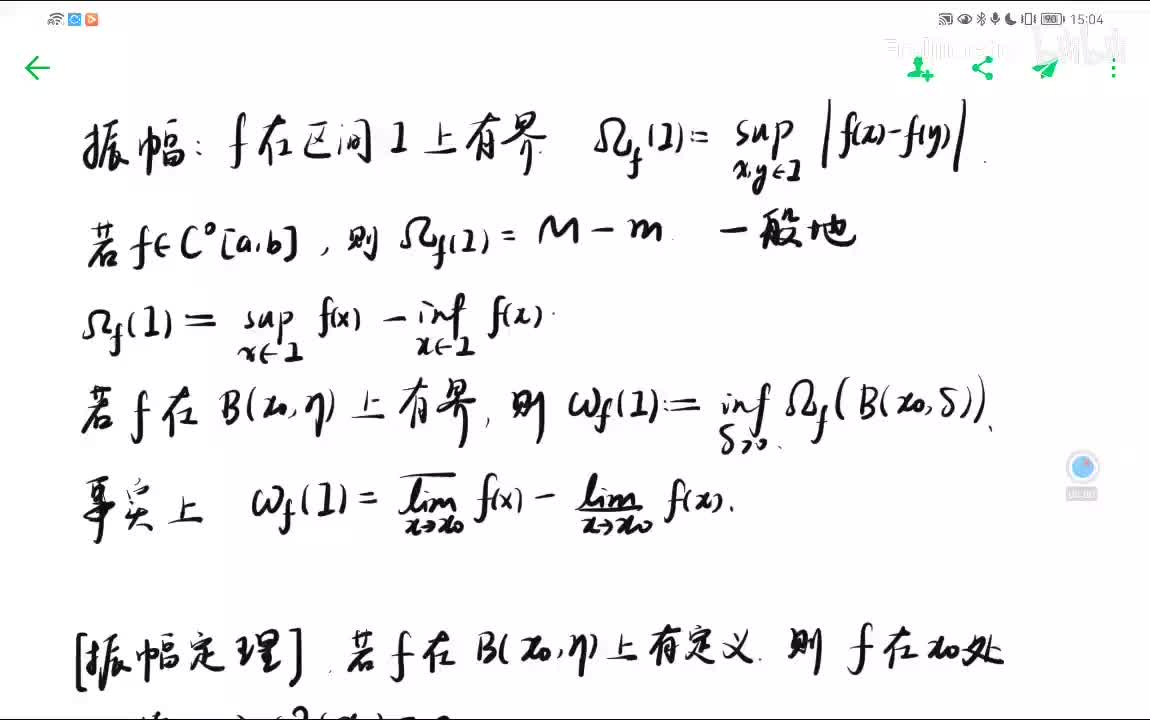 90 15:04
bilibili
振幅: f在区间I上有界. Ω_f(I)= sup_{x,y∈I} |f(x)-f(y)|.
若f∈C⁰[a,b], 则 Ω_f(I)= M-m. 一般地
Ω_f(I) = sup_{x∈I} f(x) - inf_{x∈I} f(x).
若 f 在 B(x₀,η) 上有界, 则 ω_f(I):= inf_{δ>0} Ω_f(B(x₀,δ)).
事实上 ω_f(I) = \overline{lim}_{x→x₀} f(x) - \underline{lim}_{x→x₀} f(x).
[振幅定理] 若 f 在 B(x₀,η) 上有定义. 则 f 在 x₀ 处